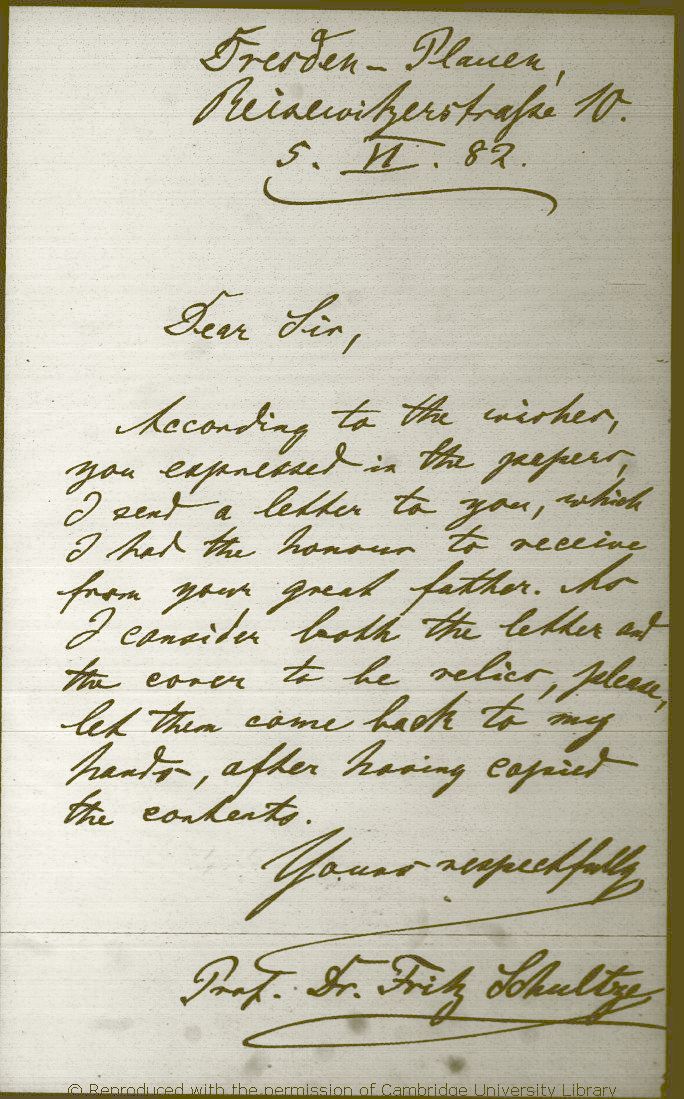 Dresden - Plauen,
Reisewitzerstraße 10.
5. VI. 82.
Dear Sir,
According to the wishes,
you expressed in the papers,
I send a letter to you, which
I had the honour to receive
from your great father. As
I consider both the letter and
the cover to be relics, please,
let them come back to my
hands, after having copied
the contents.
Yours respectfully
Prof. Dr. Fritz Schultze
© Reproduced with the permission of Cambridge University Library